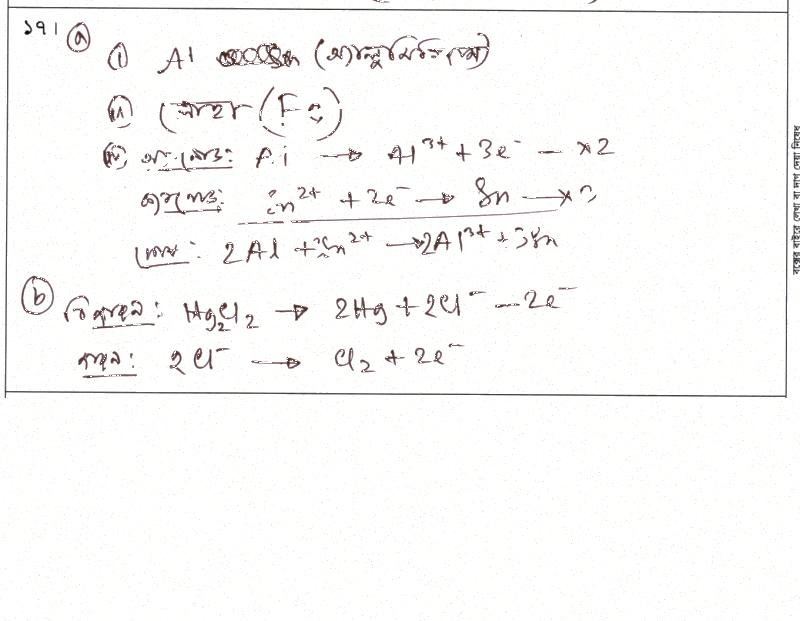 ১৭। ⓐ
ⓘ Al (অ্যালুমিনিয়াম)
ⓘⓘ লোহা (Fe)
অ্যানোড: Al → Al³⁺ + 3e⁻ — ×2
ক্যাথোড: Sn²⁺ + 2e⁻ → Sn — ×3
মোট: 2Al + 3Sn²⁺ → 2Al³⁺ + 3Sn
ⓑ বিজারণ: Hg₂Cl₂ → 2Hg + 2Cl⁻ – 2e⁻
জারণ: 2Cl⁻ → Cl₂ + 2e⁻
বক্সের বাইরে লেখা বা দাগ দেয়া নিষেধ